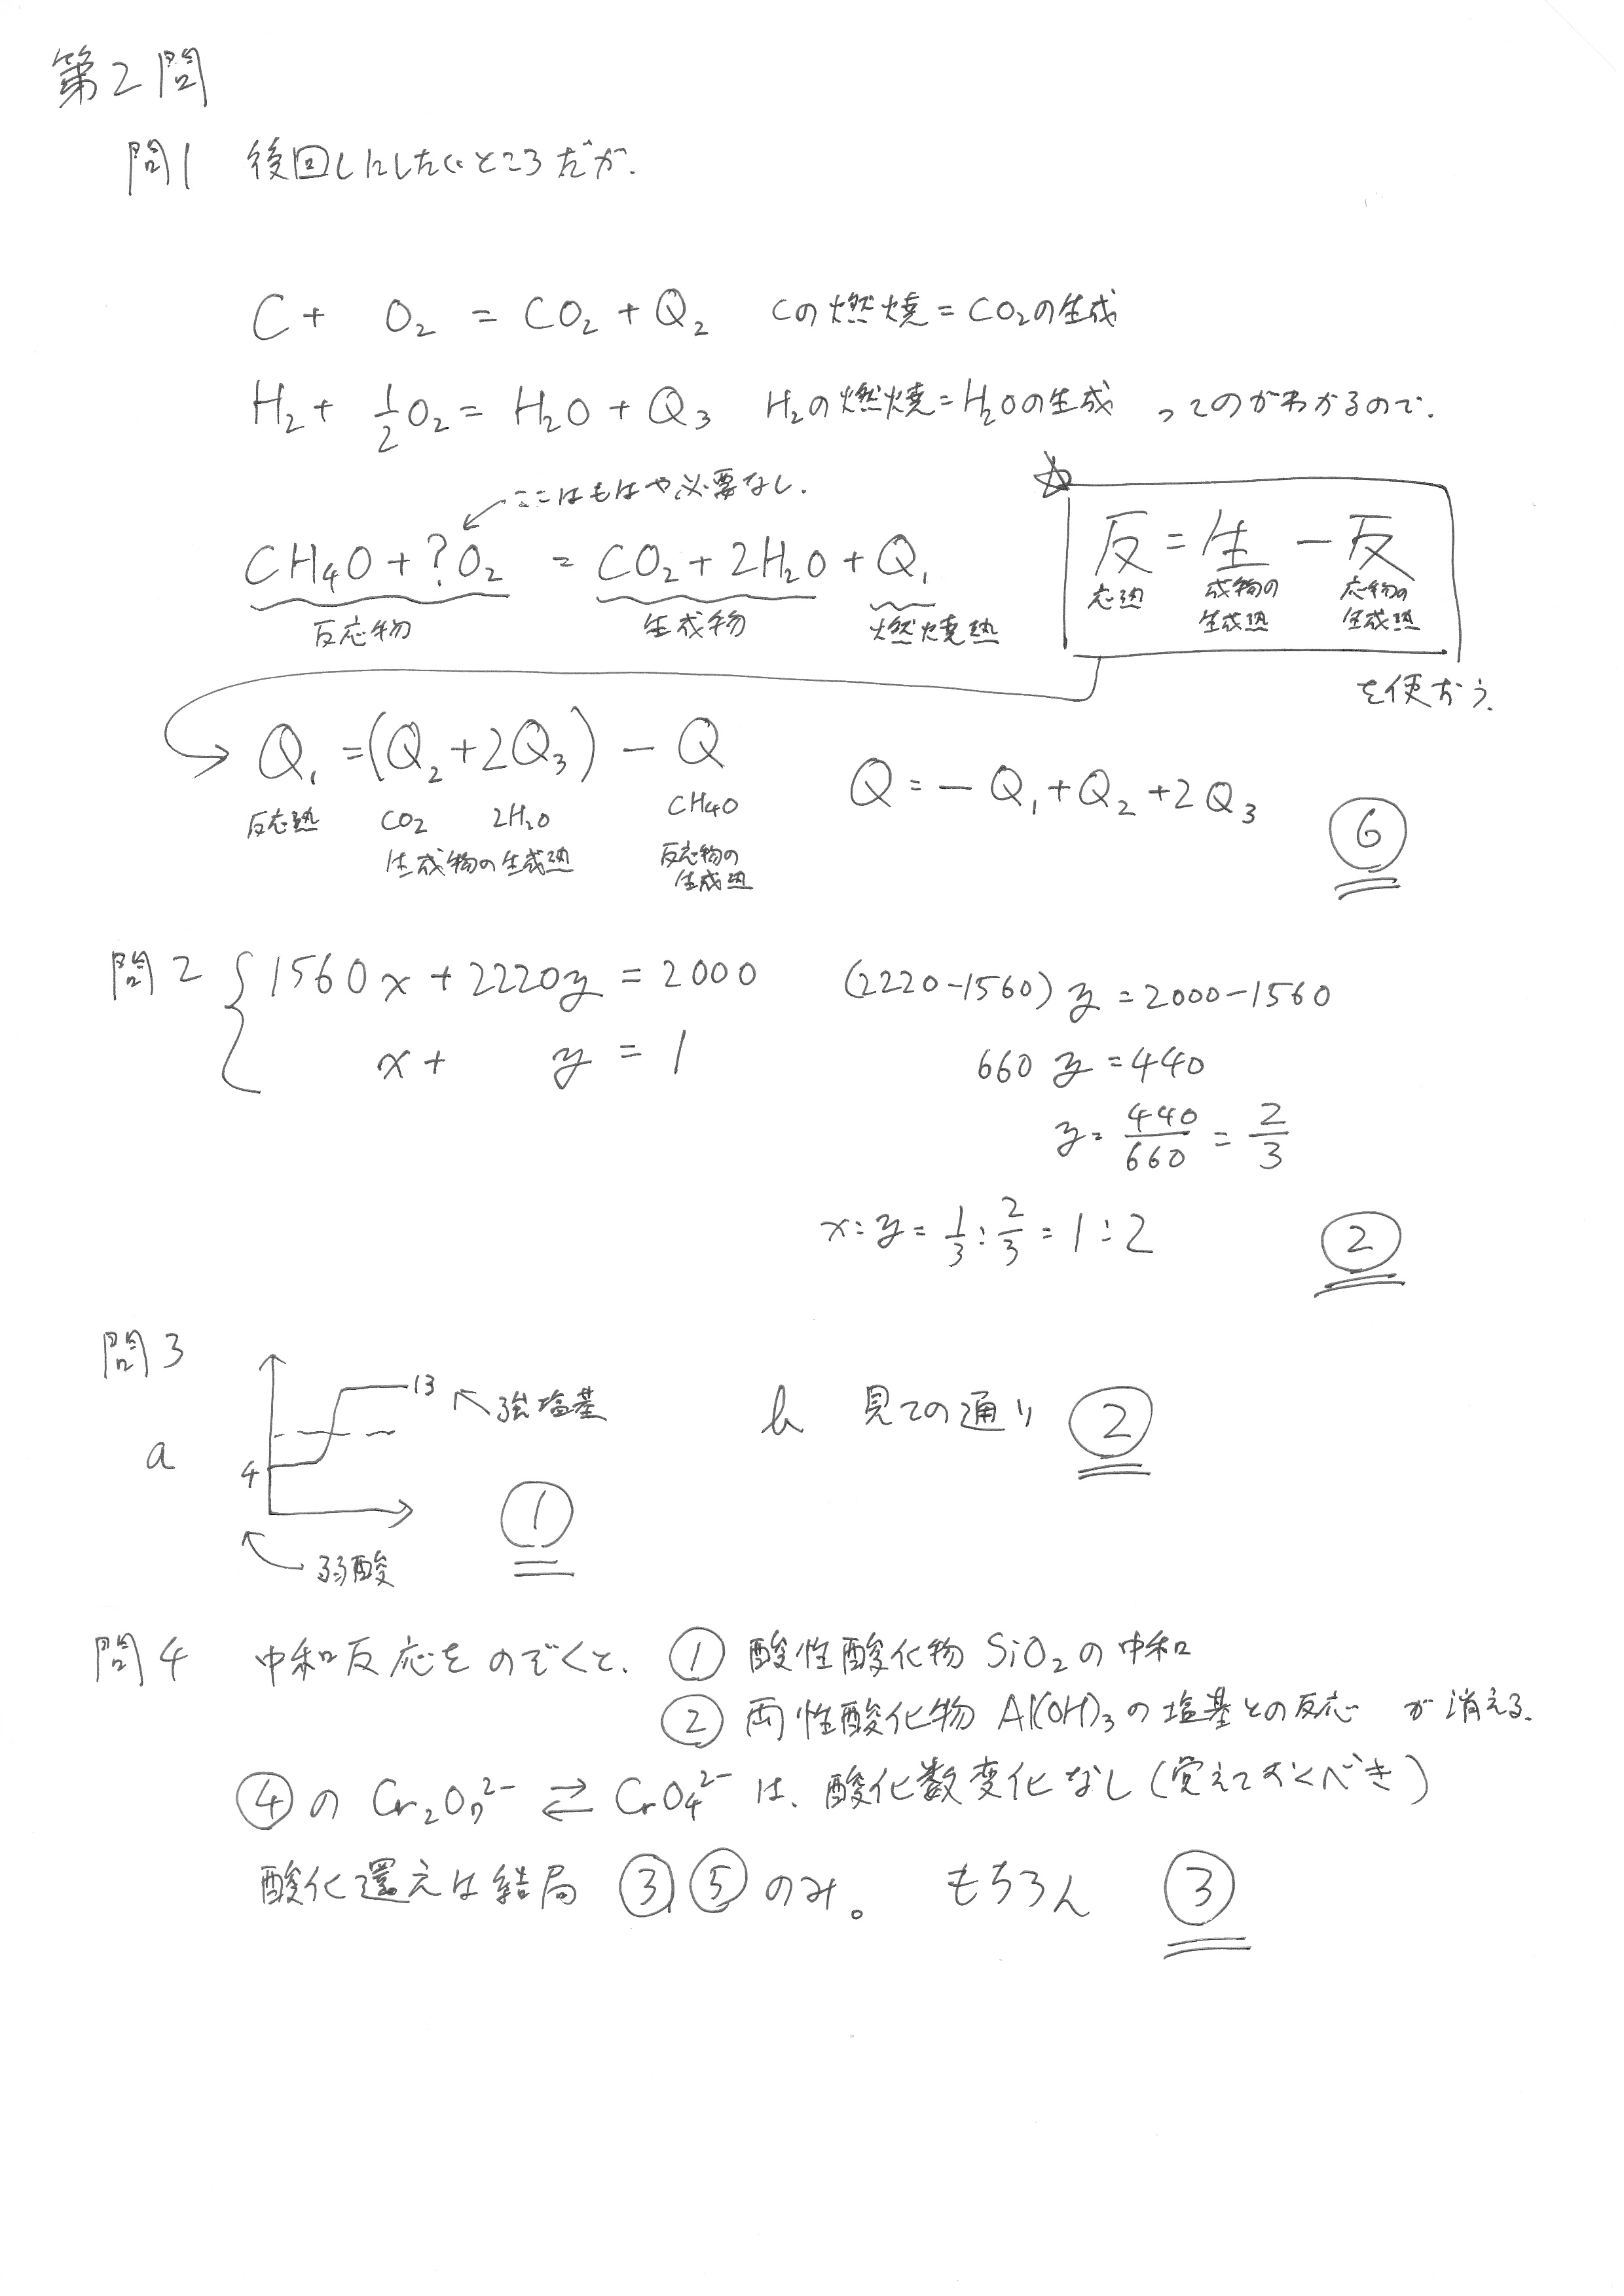 第2問
問1 後回しにしたいところだが.
C + O₂ = CO₂ + Q₂ Cの燃焼=CO₂の生成
H₂ + 1/2 O₂ = H₂O + Q₃ H₂の燃焼=H₂Oの生成 ってのがわかるので.
ここはもはや必要なし.
CH₄O + ?O₂ = CO₂ + 2H₂O + Q₁
反応物 生成物 燃焼熱
反=生-反
応熱 成物の生成熱 応物の生成熱
を使おう.
Q₁ = (Q₂ + 2Q₃) - Q
反応熱 CO₂ 2H₂O CH₄O
生成物の生成熱 反応物の生成熱
Q = - Q₁ + Q₂ + 2Q₃
⑥
問2 { 1560x + 2220y = 2000
x + y = 1
(2220-1560) y = 2000-1560
660 y = 440
y = 440/660 = 2/3
x:y = 1/3 : 2/3 = 1:2
②
問3
a
13
強塩基
4
弱酸
①
b 見ての通り ②
問4 中和反応をのぞくと. ① 酸性酸化物 SiO₂の中和
② 両性酸化物 Al(OH)₃の塩基との反応 が消える.
④の Cr₂O₇²⁻ ⇄ CrO₄²⁻ は、酸化数変化なし(覚えておくべき)
酸化還元は結局 ③⑤のみ。 もちろん ③